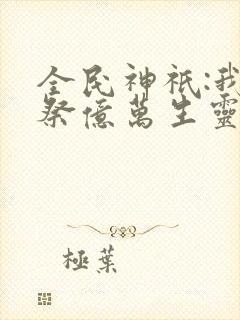 全民神祇:我
祭億萬生靈
極葉